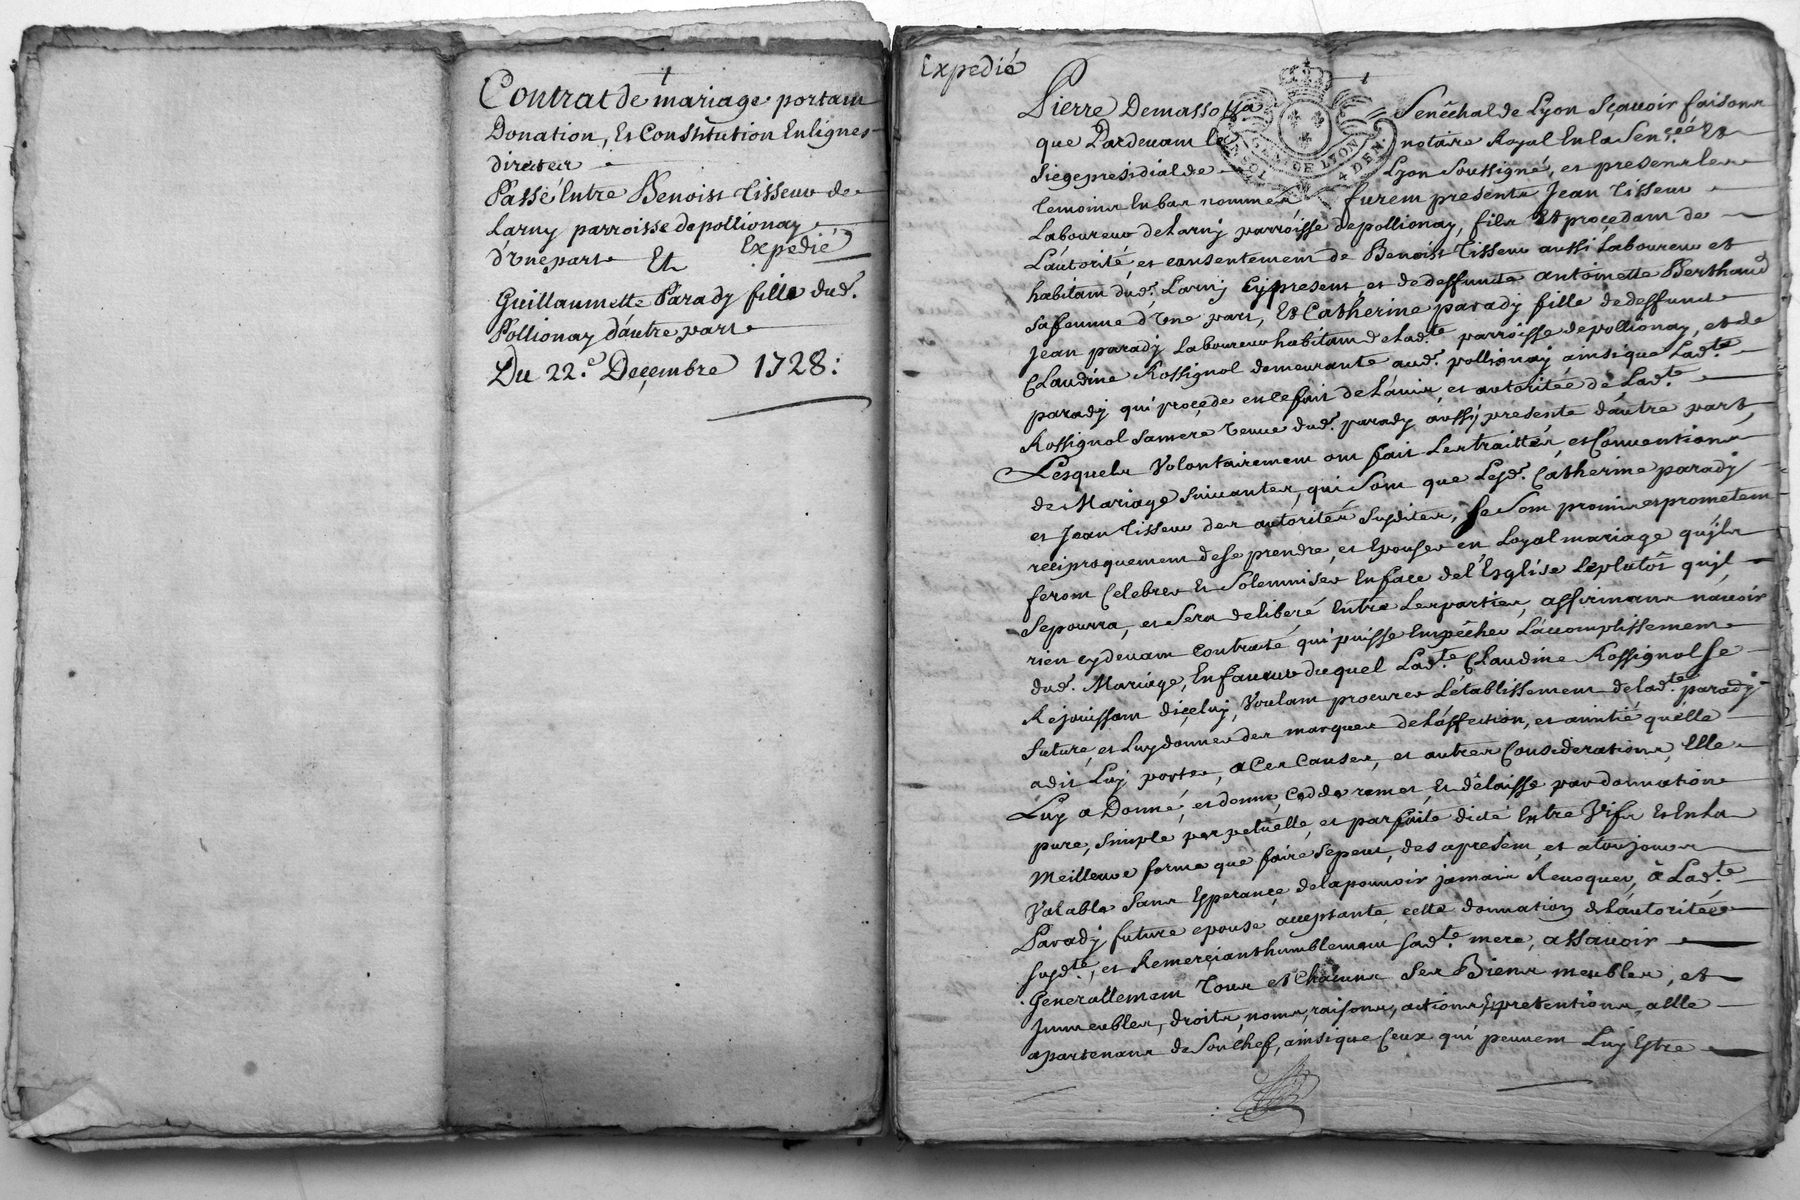 Contrat de mariage portant
Donation, Et Constitution En lignes
directes
Passé Entre Benoist Tisseur de
Larny parroisse de pollionay
d'Une part Et Expedié
Guillaumette Parady fille dud.
Pollionay d'autre part
Du 22.e Decembre 1728:
Expedié
Pierre Demasso Sa Senêchal de Lyon Sçauoir faisons
que Pardeuant le notaire Royal En la Sen.cée Et
Siege presidial de Lyon Soussigné, et presens les
GEN. DE LYON
4 DEN
Temoins En bas nommés furent presents Jean Tisseur
Laboureur de Larny parroisse de pollionay, fils Et procedant de
L'autorité, et consentement de Benoist Tisseur aussi Laboureur et
habitant dud. Larny Cy present, et de deffunte antoinette Berthaud
Sa femme d'Une part, Et Catherine parady fille de deffunt
Jean parady Laboureur habitant de Lad.te parroisse de pollionay, et de
Claudine Rossignol demeurante aud. pollionay ainsi que Lad.te
parady qui procede en ce fait de L'auis, et autoritée de Lad.te
Rossignol Sa mere Veuue dud. parady aussy presente d'autre part,
Lesquels Volontairement ont fait Les traittés, et Conuentions
de Mariage Suiuantes, qui Sont que Lesd. Catherine parady
et Jean Tisseur des autorités Susdites, Se Sont promis et prometent
reciproquement de Se prendre, et Epouser en Loyal mariage qu'jls
feront Celebrer Et Solemniser En face de l'Esglise Leplutôt qu'jl
Se pourra, et Sera deliberé Entre Les parties, affirmans n'auoir
rien cy deuant Contracté qui puisse Empêcher L'accomplissement
dud. Mariage, En faueur duquel Lad.te Claudine Rossignol Se
Rejouissant d'jceluy, Voulant procurer L'établissement de Lad.te parady
future, et Luy donner des marques de L'affection, et amitié qu'elle
a dit Luy porter, a Ces Causes, et autres Considerations, Elle
Luy a Donné, et donne, Cedde remet, Et délaisse par donnation
pure, Simple perpetuelle, et parfaite dicté Entre Vifs Et En La
Meilleure forme que faire Se peut, des a present, et a toujours
Valable Sans Esperance de La pouuoir jamais Reuoquer, à Lad.te
Parady future epouse acceptante, cette donnation de L'autoritée
Susd.te, et Remerciant humblement Sad.te mere, assauoir
Generallement Tous et Chacuns Ses Biens meubles, et
Jmmeubles, droits, noms, raisons, actions, Et pretentions, a Elle
apartenans de Son Chef, ainsi que Ceux qui peuuent Luy Estre